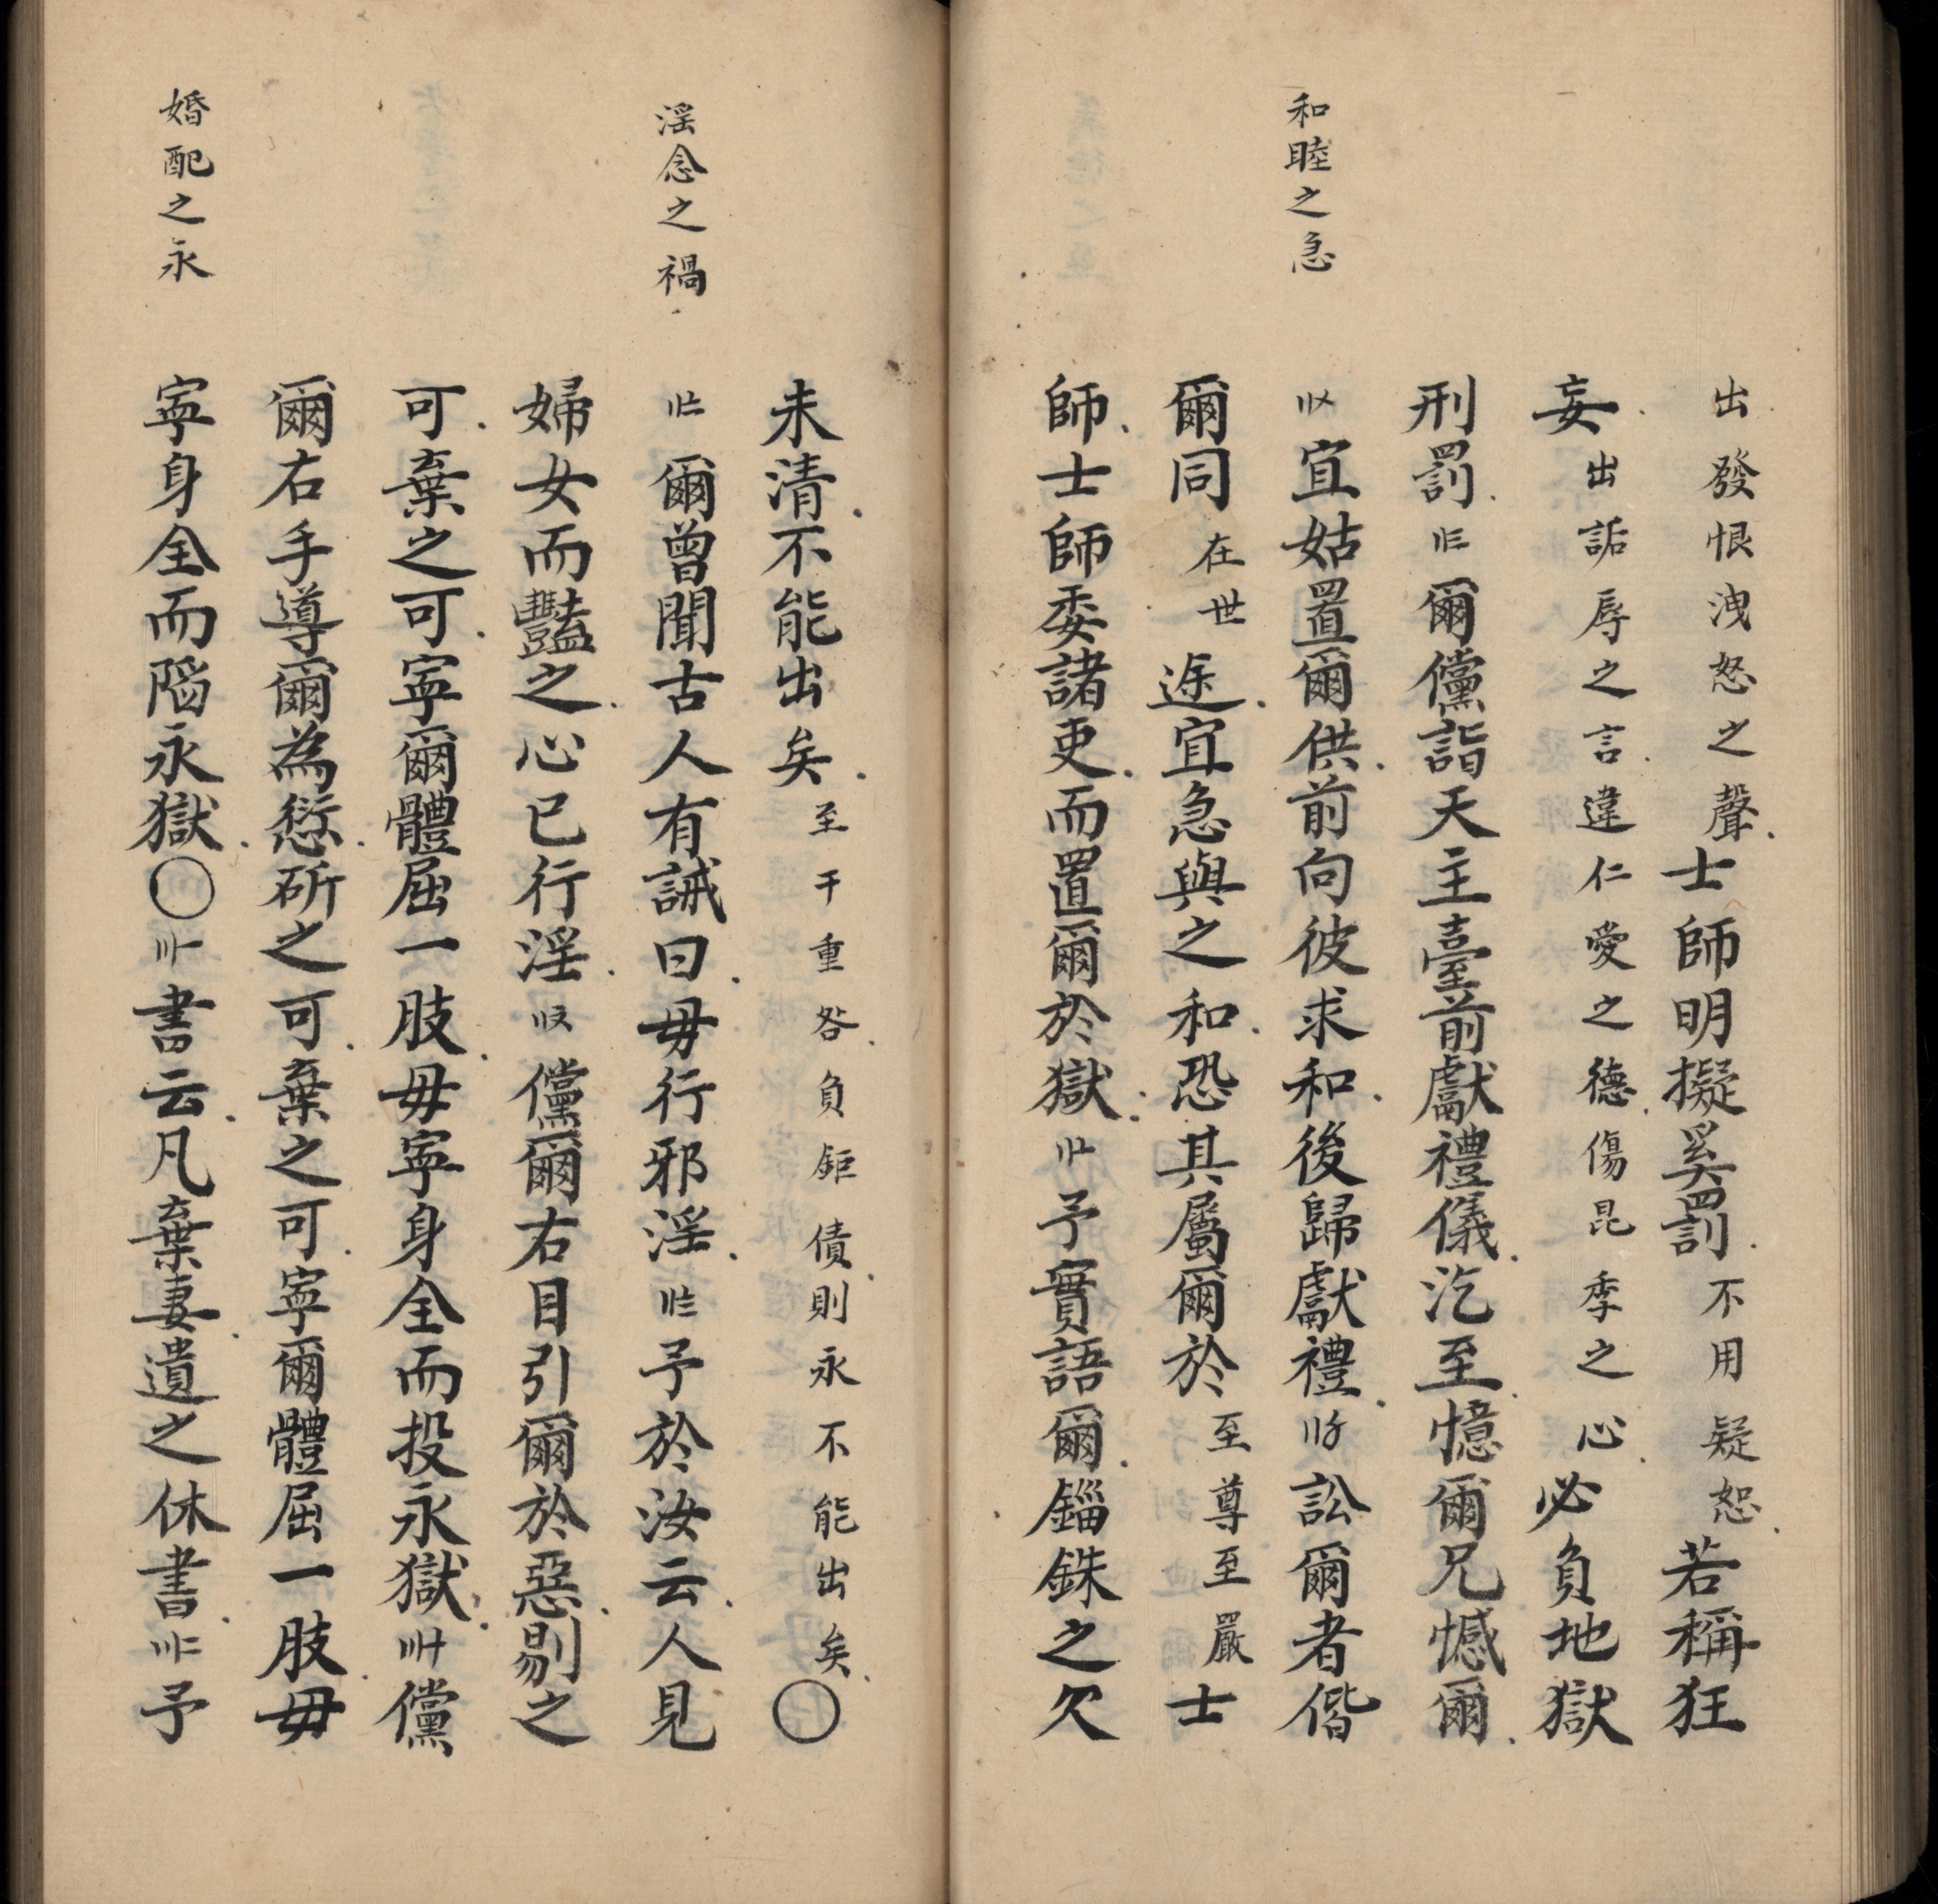 出發恨洩怒之聲士師明擬奚罰不用疑恕若稱狂
妄出詬辱之言違仁愛之德傷昆季之心必負地獄
刑罰〢三爾儻詣天主臺前獻禮儀汔至憶爾兄憾爾
和睦之急
〢〤宜姑置爾供前向彼求和後歸獻禮〢〥訟爾者偕
爾同在世途宜急與之和恐其屬爾於至尊至嚴士
師士師委諸吏而置爾於獄〢〦予實語爾錙銖之欠
未清不能出矣至干重咎負鉅債則永不能出矣〇
淫念之禍
〢〧爾曾聞古人有誡曰毋行邪淫〢〨予於汝云人見
婦女而豔之心已行淫〢〩儻爾右目引爾於惡剔之
可棄之可寧爾體屈一肢毋寧身全而投永獄〣十儻
爾右手導爾為愆斫之可棄之可寧爾體屈一肢毋
婚配之永
寧身全而陷永獄〇〣一書云凡棄妻遺之休書〣二予